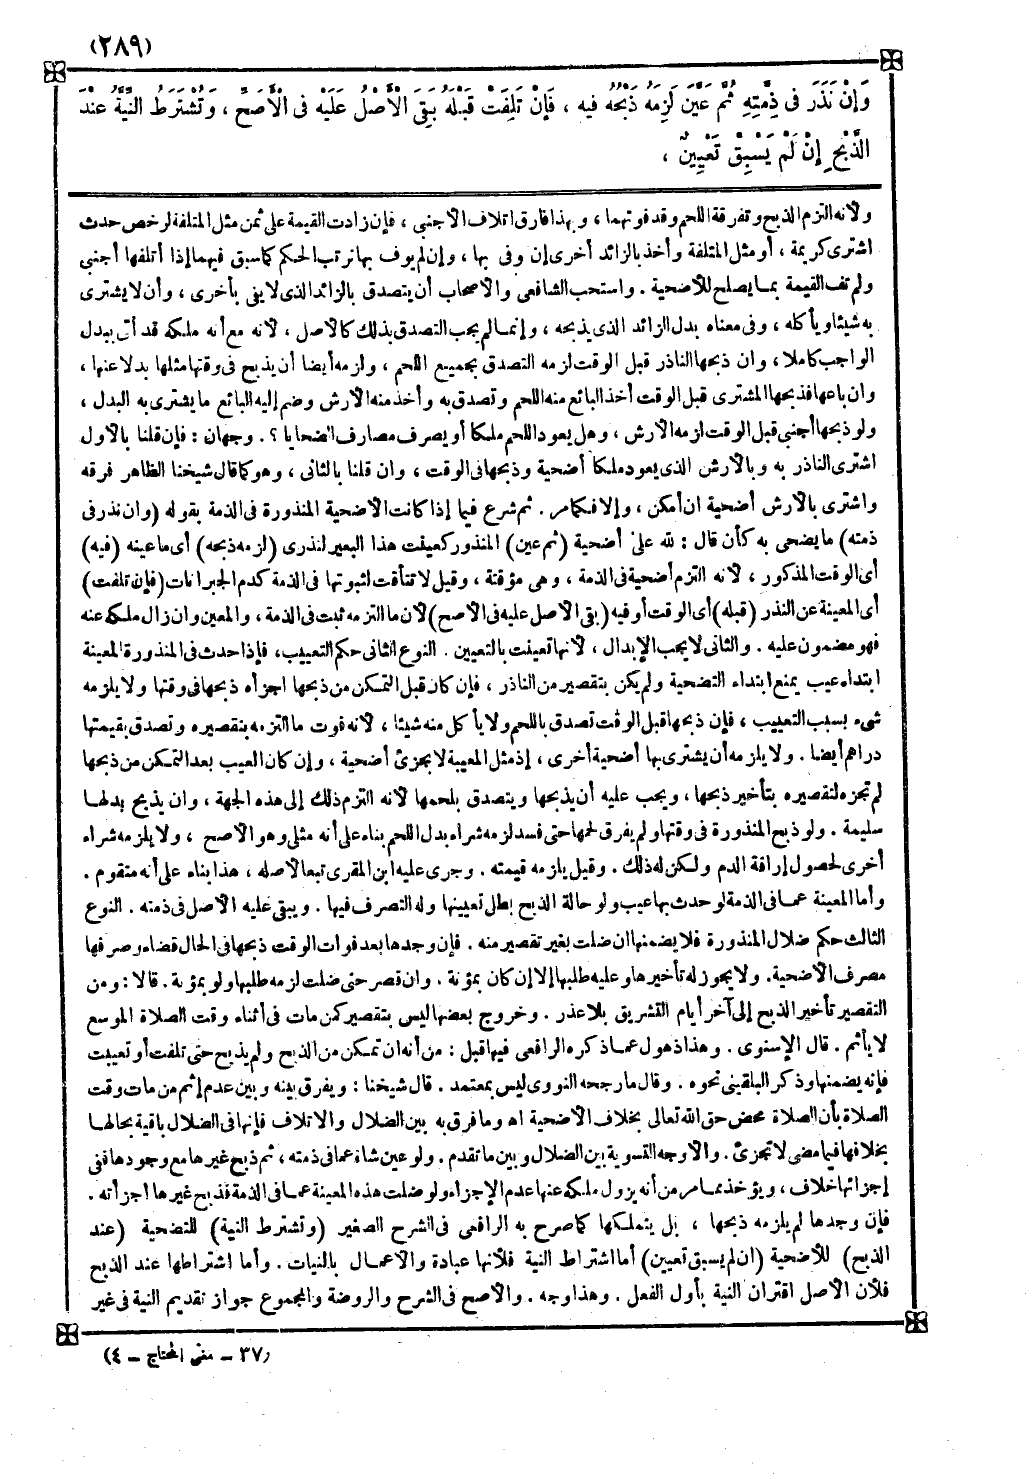 (٢٨٩)
وَإِنْ نَذَرَ فى ذِمَّتِهِ ثُمَّ عَيَّنَ لَزِمَهُ ذَبْحُهُ فيه ، فَإِنْ تَلِفَتْ قَبْلَهُ بَقِىَ الْأَصْلُ عَلَيْهِ فى الْأَصَحِّ ، وَتُشْتَرَطُ النِّيَّةُ عِنْدَ
الذَّبْحِ إِنْ لَمْ يَسْبِقْ تَعْيِينٌ ،
ولانه التزم الذبح وتفرقة اللحم وقد فوتهما ، وبهذا فارق اتلاف الأجنبى ، فإن زادت القيمة على ثمن مثل المتلفة لرخص حدث
اشترى كريمة ، أو مثل المتلفة وأخذ بالزائد أخرى إن وفى بها ، وإن لم يوف بها ترتب الحكم كما سبق فيهما إذا أتلفها أجنبى
ولم تف القيمة بما يصلح للأضحية . واستحب الشافعى والأصحاب أن يتصدق بالزائد الذى لا يفى بأخرى ، وأن لا يشترى
به شيئا ويأكله ، وفى معناه بدل الزائد الذى يذبحه ، وإنما لم يجب التصدق بذلك كالأصل ، لأنه مع أنه ملكه قد أتى ببدل
الواجب كاملا ، وان ذبحها الناذر قبل الوقت لزمه التصدق بجميع اللحم ، ولزمه أيضا أن يذبح فى وقتها مثلها بدلا عنها ،
وان باعها فذبحها المشترى قبل الوقت أخذ البائع منه اللحم وتصدق به وأخذ منه الأرش وضم إليه البائع ما يشترى به البدل ،
ولو ذبحها أجنبى قبل الوقت لزمه الأرش ، وهل يعود اللحم ملكا أو يصرف مصارف الضحايا ؟ . وجهان : فإن قلنا بالأول
اشترى الناذر به وبالأرش الذى يعود ملكا أضحية وذبحها فى الوقت ، وان قلنا بالثانى ، وهو كما قال شيخنا الظاهر فرقه
واشترى بالأرش أضحية ان أمكن ، وإلا فكما مر . ثم شرع فيما إذا كانت الأضحية المنذورة فى الذمة بقوله (وان نذر فى
ذمته) ما يضحى به كأن قال : لله علىّ أضحية (ثم عين) المنذور كعينت هذا البعير لنذرى (لزمه ذبحه) أى ما عينه (فيه)
أى الوقت المذكور ، لأنه التزم أضحية فى الذمة ، وهى مؤقتة ، وقيل لا تتأقت لثبوتها فى الذمة كدم الجبرانات (فإن تلفت)
أى المعينة عن النذر (قبله) أى الوقت أو فيه (بقى الأصل عليه فى الأصح) لأن ما التزمه ثبت فى الذمة ، والمعين وان زال ملكه عنه
فهو مضمون عليه . والثانى لا يجب الإبدال ، لأنها تعينت بالتعيين . النوع الثانى حكم التعييب، فإذا حدث فى المنذورة المعينة
ابتداء عيب يمنع ابتداء التضحية ولم يكن بتقصير من الناذر ، فإن كان قبل التمكن من ذبحها اجزأه ذبحها فى وقتها ولا يلزمه
شىء بسبب التعييب ، فإن ذبحها قبل الوقت تصدق باللحم ولا يأكل منه شيئا ، لأنه فوت ما التزمه بتقصيره وتصدق بقيمتها
دراهم أيضا . ولا يلزمه أن يشترى بها أضحية أخرى ، إذ مثل المعيبة لا يجزئ أضحية ، وإن كان العيب بعد التمكن من ذبحها
لم تجزه لتقصيره بتأخير ذبحها ، ويجب عليه أن يذبحها ويتصدق بلحمها لأنه التزم ذلك إلى هذه الجهة ، وان يذبح بدلها
سليمة . ولو ذبح المنذورة فى وقتها ولم يفرق لحمها حتى فسد لزمه شراء بدل اللحم بناء على أنه مثلى وهو الأصح ، ولا يلزمه شراء
أخرى لحصول إراقة الدم ولكن له ذلك . وقيل يلزمه قيمته . وجرى عليه ابن المقرى تبعا لأصله ، هذا بناء على أنه متقوم .
وأما المعينة عما فى الذمة لو حدث بها عيب ولو حالة الذبح بطل تعيينها وله التصرف فيها . ويبقى عليه الأصل فى ذمته . النوع
الثالث حكم ضلال المنذورة فلا يضمنها ان ضلت بغير تقصير منه . فإن وجدها بعد فوات الوقت ذبحها فى الحال قضاء وصرفها
مصرف الأضحية. ولا يجوز له تأخيرها وعليه طلبها إلا إن كان بمؤنة . وان قصر حتى ضلت لزمه طلبها ولو بمؤنة . قالا : ومن
التقصير تأخير الذبح إلى آخر أيام التشريق بلا عذر . وخروج بعضها ليس بتقصير كمن مات فى أثناء وقت الصلاة الموسع
لا يأثم . قال الإسنوى . وهذا ذهول عما ذكره الرافعى فيها قبل : من أنه ان تمكن من الذبح ولم يذبح حتى تلفت أو تعيبت
فإنه يضمنها وذكر البلقينى نحوه . وقال ما رجحه النووى ليس بمعتمد . قال شيخنا : ويفرق بينه وبين عدم إثم من مات وقت
الصلاة بأن الصلاة محض حق الله تعالى بخلاف الأضحية اه وما فرق به بين الضلال والاتلاف فإنها فى الضلال باقية بحالها
بخلافها فيما مضى لا تجزئ . والأوجه التسوية بين الضلال وبين ما تقدم . ولو عين شاة عما فى ذمته ، ثم ذبح غيرها مع وجودها ففى
إجزائها خلاف ، ويؤخذ مما مر من أنه يزول ملكه عنها عدم الإجزاء ولو ضلت هذه المعينة عما فى الذمة فذبح غيرها اجزأته .
فإن وجدها لم يلزمه ذبحها ، بل يتملكها كما صرح به الرافعى فى الشرح الصغير (وتشترط النية) للتضحية (عند
الذبح) للأضحية (ان لم يسبق تعيين) أما اشتراط النية فلأنها عبادة والأعمال بالنيات . وأما اشتراطها عند الذبح
فلأن الأصل اقتران النية بأول الفعل . وهذا وجه . والأصح فى الشرح والروضة والمجموع جواز تقديم النية فى غير
(٣٧ - مغنى المحتاج - ٤)